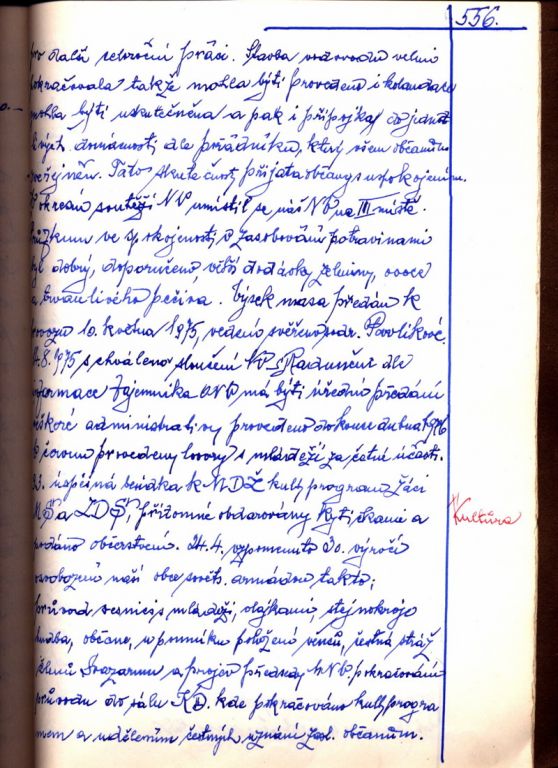 556.
pro další zkrášlení práci. Stavba vodovodu velmi
pokračovala takže mohla býti provedena i kolaudace
mohla býti uskutečněna a pak i přípojka do jednot
livých domácností dle pořádníku, který všem občanům
zveřejněn. Tato skutečnost přijata občany s uspokojením.
V okresní soutěži NV umístil se náš NV na III místě.
Průzkum ve spokojenosti v zásobování potravinami
byl dobrý, doporučeno větší dodávky zeleniny, ovoce
a trvanlivého pečiva. Výsek masa předán k
provozu 10. května 1975, vedení svěřeno sdr. Pavlíkové.
8. 1975 schváleno sloučení NV s Radunčí dle
informace tajemníka ONV má býti úřední předání
veškeré administrativy provedeno do konce dubna 1976
provedeny hovory s mládeží za četné účasti.
3. úspěšná beseda k MDŽ kult. program žáci
MŠ a ZDŠ, přítomné obdarovány kytičkami a
podáno občerstvení. 24.4. vzpomenuto 30. výročí
osvobození naší obce sovět. armádou takto;
průvod vesnicí s mládeží, vlajkami, stejnokroje
hudba, občané, u pomníku položení věnců, čestná stráž
členů Svazarmu a projev předsedy MNV, pokračování
průvodu do sálu KD. kde pokračováno kult. progra
mem a udělením čestných uznání zasl. občanům.
Kultura